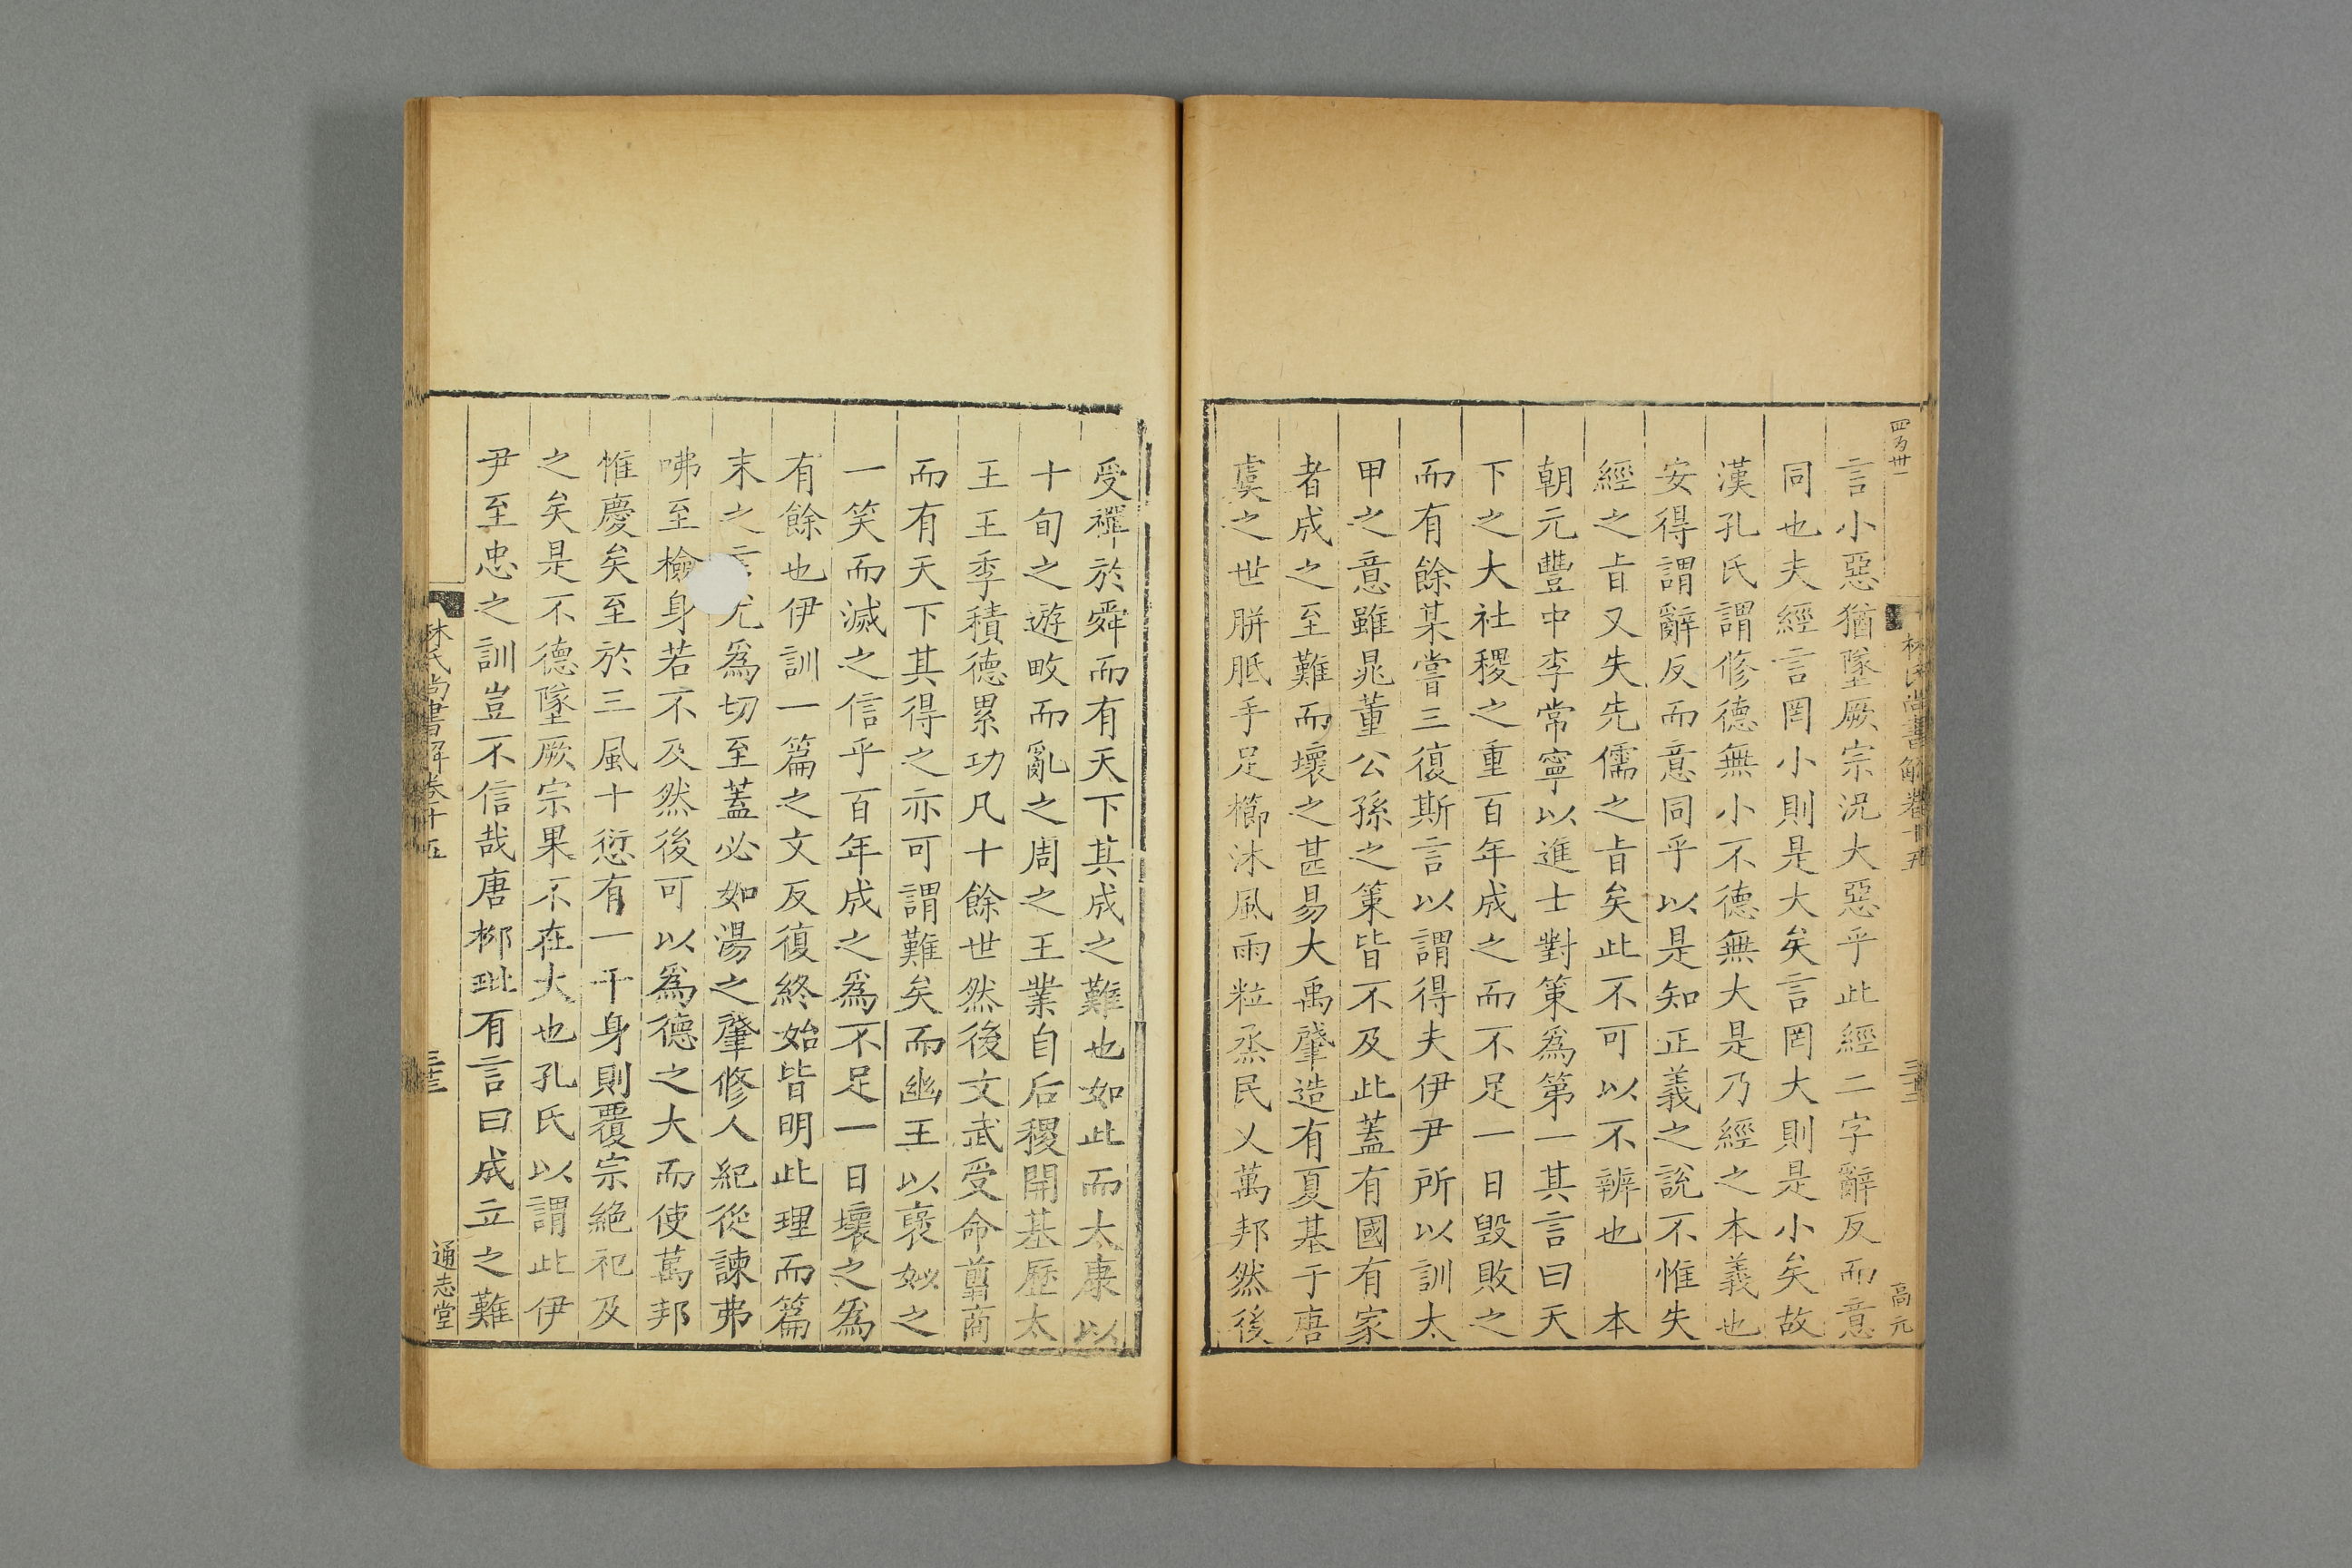 四百卅一
林氏尚書解卷十五
三十二
高元
言小惡猶墜厥宗況大惡乎此經二字辭反而意
同也夫經言罔小則是大矣言罔大則是小矣故
漢孔氏謂修德無小不德無大是乃經之本義也
安得謂辭反而意同乎以是知正義之說不惟失
經之㫖又失先儒之㫖矣此不可以不辨也 本
朝元豐中李常寧以進士對策爲第一其言曰天
下之大社稷之重百年成之而不足一日毀敗之
而有餘某嘗三復斯言以謂得夫伊尹所以訓太
甲之意雖晁董公孫之策皆不及此蓋有國有家
者成之至難而壞之甚易大禹肇造有夏基于唐
虞之世胼胝手足櫛沐風雨粒烝民乂萬邦然後
受禪於舜而有天下其成之難也如此而太康以
十旬之遊畋而亂之周之王業自后稷開基歷太
王王季積德累功凡十餘世然後文武受命翦商
而有天下其得之亦可謂難矣而幽王以褒姒之
一笑而滅之信乎百年成之爲不足一日壞之爲
有餘也伊訓一篇之文反復終始皆明此理而篇
末之尤爲切至蓋必如湯之肇修人紀從諫弗
咈至檢身若不及然後可以爲德之大而使萬邦
惟慶矣至於三風十愆有一干身則覆宗絕祀及
之矣是不德墜厥宗果不在大也孔氏以謂此伊
尹至忠之訓豈不信哉唐柳玭有言曰成立之難
林氏尚書解卷十五
三十三
通志堂